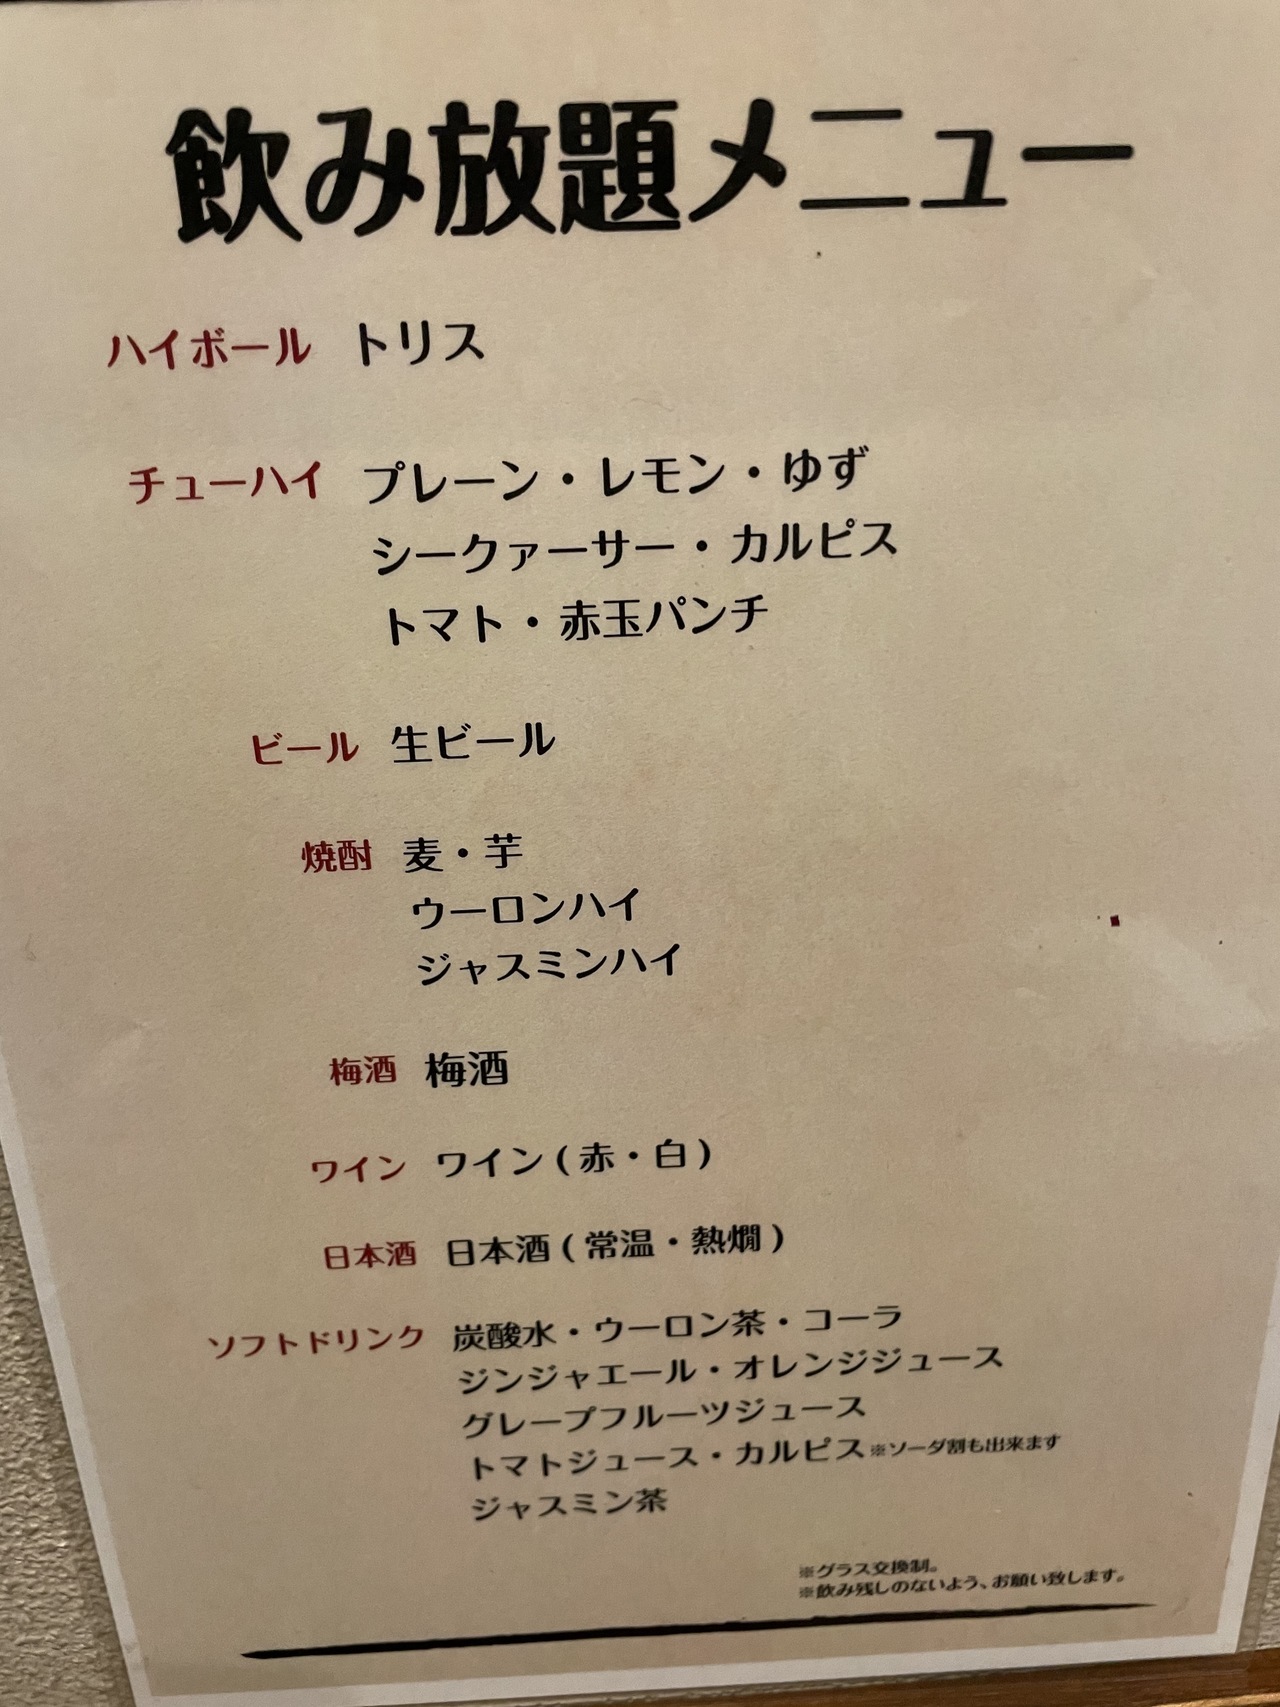 飲み放題メニュー
ハイボール トリス
チューハイ プレーン・レモン・ゆず
シークァーサー・カルピス
トマト・赤玉パンチ
ビール 生ビール
焼酎 麦・芋
ウーロンハイ
ジャスミンハイ
梅酒 梅酒
ワイン ワイン(赤・白)
日本酒 日本酒(常温・熱燗)
ソフトドリンク 炭酸水・ウーロン茶・コーラ
ジンジャエール・オレンジジュース
グレープフルーツジュース
トマトジュース・カルピス※ソーダ割も出来ます
ジャスミン茶
※グラス交換制。
※飲み残しのないよう、お願い致します。